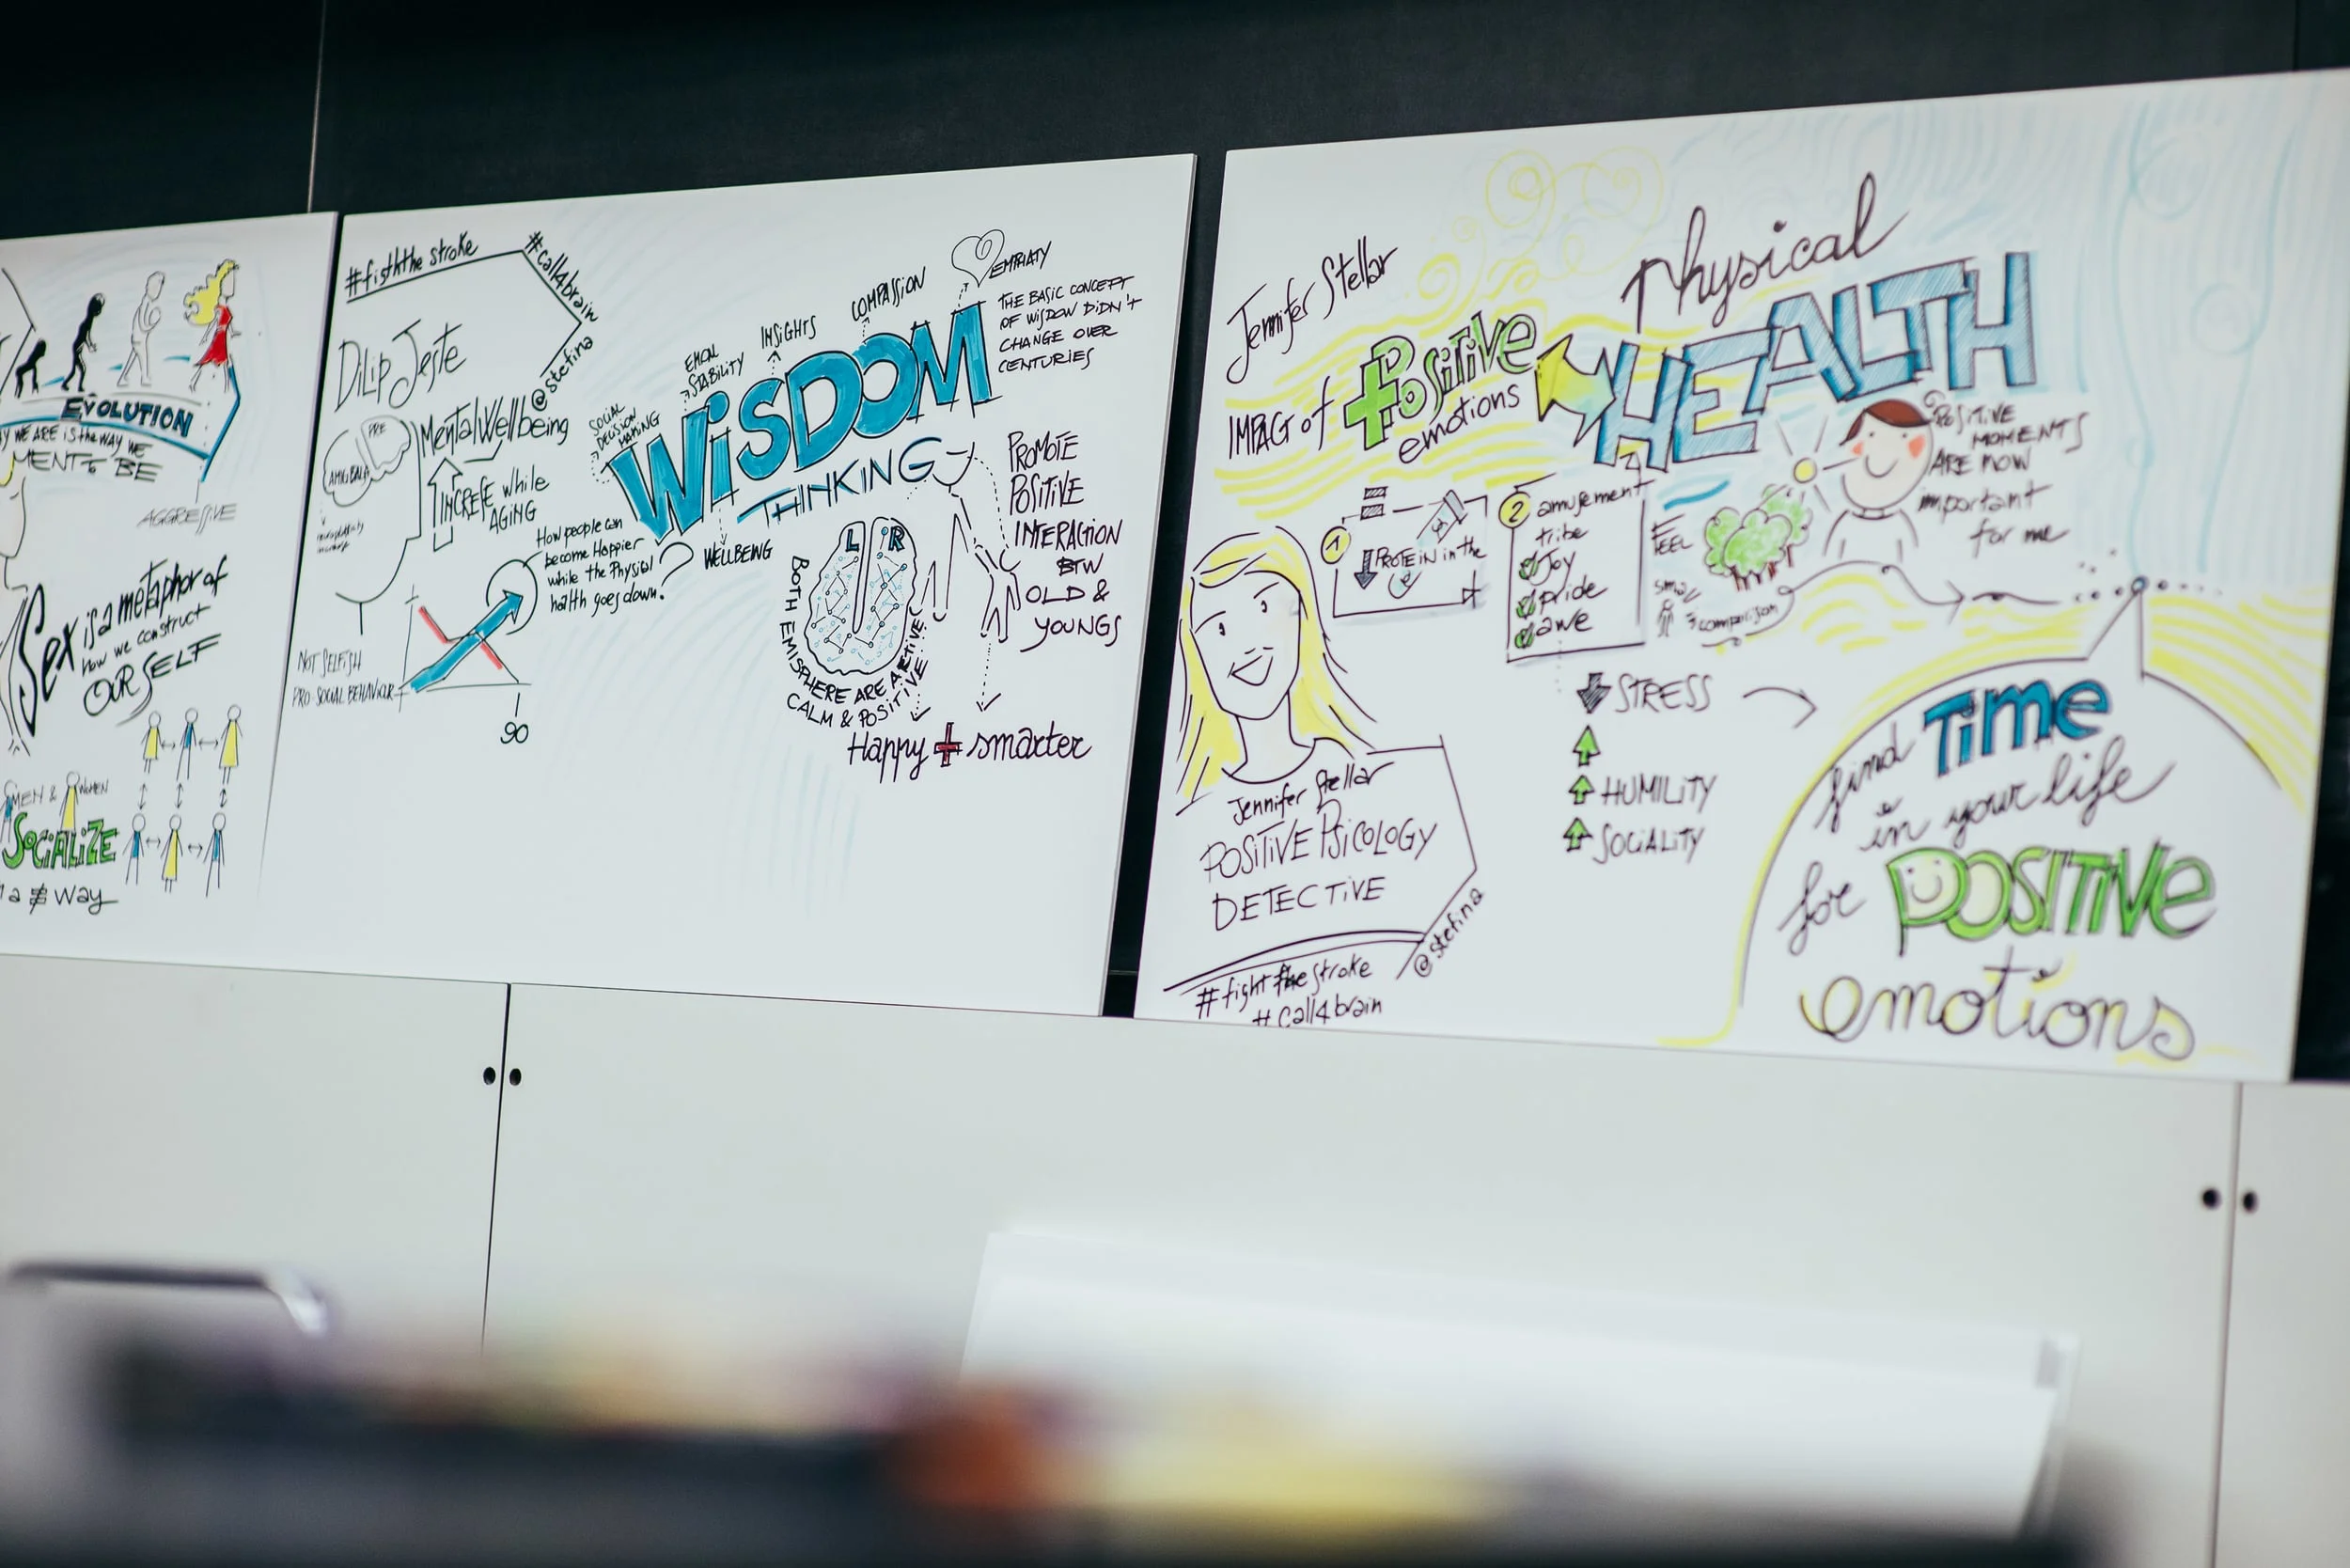 EVOLUTION
WE ARE is the WAY WE
MENT to BE
AGGRESSIVE
Sex is a metaphor of
how we construct
OURSELF
MEN & WOMEN
SOCIALIZE
in a ≠ way
#fisththe stroke
#call4brain
@stefina
DiLip Jeste
PRE
AMIGDALA
Mental Wellbeing
INCREFE while
AGING
How people can
become Happier
while the Physical
health goes down?
NOT SELFISH
PRO SOCIAL BEHAVIOUR
90
SOCIAL
DECISION
MAKING
EMON
STABILITY
INSiGHTS
COMPASSION
EMPHATY
THE BASIC CONCEPT
OF WISDOW DIDN'T
CHANGE OVER
CENTURIES
WiSDOM
THINKING
WELLBEING
L R
BOTH EMISPHERE ARE ACTIVE
CALM & POSITIVE
PROMOTE
POSITIVE
INTERACTION
BTW
OLD &
YOUNGS
Happy + smarter
Jennifer Stellar
IMPACT of +Positive
emotions
Physical
HEALTH
1
PROTEIN in the
2 amusement
tribe
Joy
pride
awe
FEEL
small
comparison
POSITIVE
MOMENTS
ARE NOW
important
for me
STRESS
HUMILITY
SOCIALITY
Jennifer Stellar
POSITIVE PSICOLOGY
DETECTIVE
@stefina
#fight the stroke
#Call4brain
find Time
in your life
for POSITIVE
emotions